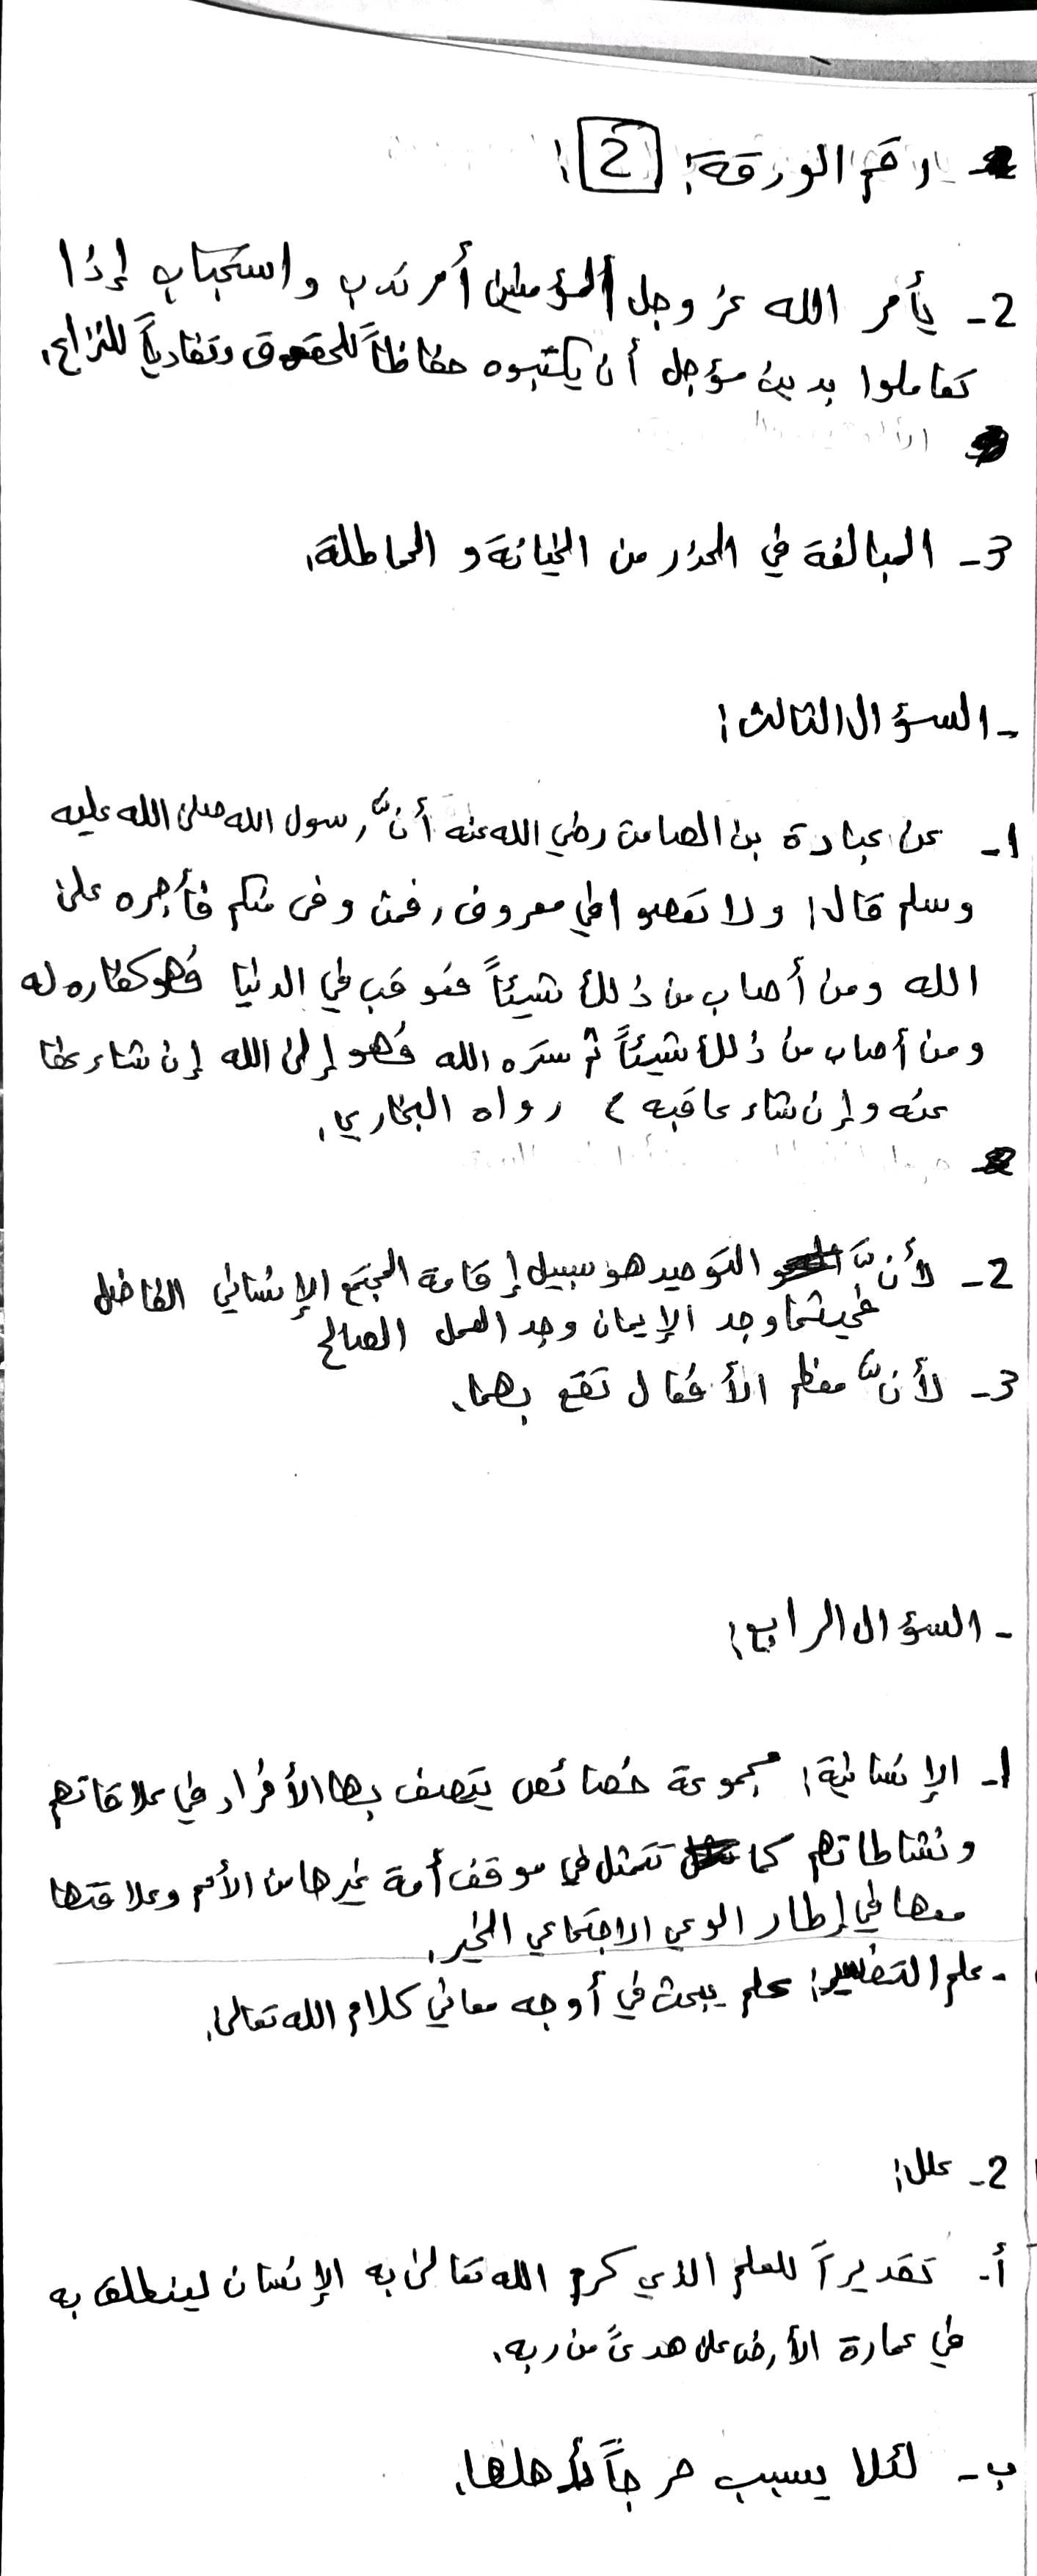 رقم الورقة: 2:
2- يأمر الله عز وجل المؤمنين أمر ندب واستحباب إذا
تعاملوا بدين مؤجل أن يكتبوه حفاظاً للحقوق وتفادياً للنزاع.
3- المبالغة في الحذر من الخيانة و المماطلة.
- السؤال الثالث:
1- عن عبادة بن الصامت رضي الله عنه أنَّ رسول الله صلى الله عليه
وسلم قال: ولا تعصوا في معروف، فمن وفى منكم فأجره على
الله ومن أصاب من ذلك شيئاً فعوقب في الدنيا فهو كفاره له
ومن أصاب من ذلك شيئاً ثم ستره الله فهو إلى الله إن شاء عفا
عنه وإن شاء عاقبه ) رواه البخاري.
2- لأنَّ التوحيد هو سبيل إقامة المجتمع الإنساني الفاضل
فحيثما وجد الإيمان وجد العمل الصالح
3- لأنَّ معظم الأفعال تقع بهما.
- السؤال الرابع:
1- الإنسانية: مجموعة خصائص يتصف بها الأفراد في علاقاتهم
ونشاطاتهم كما تتمثل في موقف أمة غيرها من الأمم وعلاقتها
معها في إطار الوعي الاجتماعي الخير.
- علم التفسير: علم يبحث في أوجه معاني كلام الله تعالى.
2- علل:
أ- تقديراً للعلم الذي كرم الله تعالى به الإنسان لينطلق به
في عمارة الأرض على هدىً من ربه.
ب- لئلا يسبب حرجاً لأهلها.